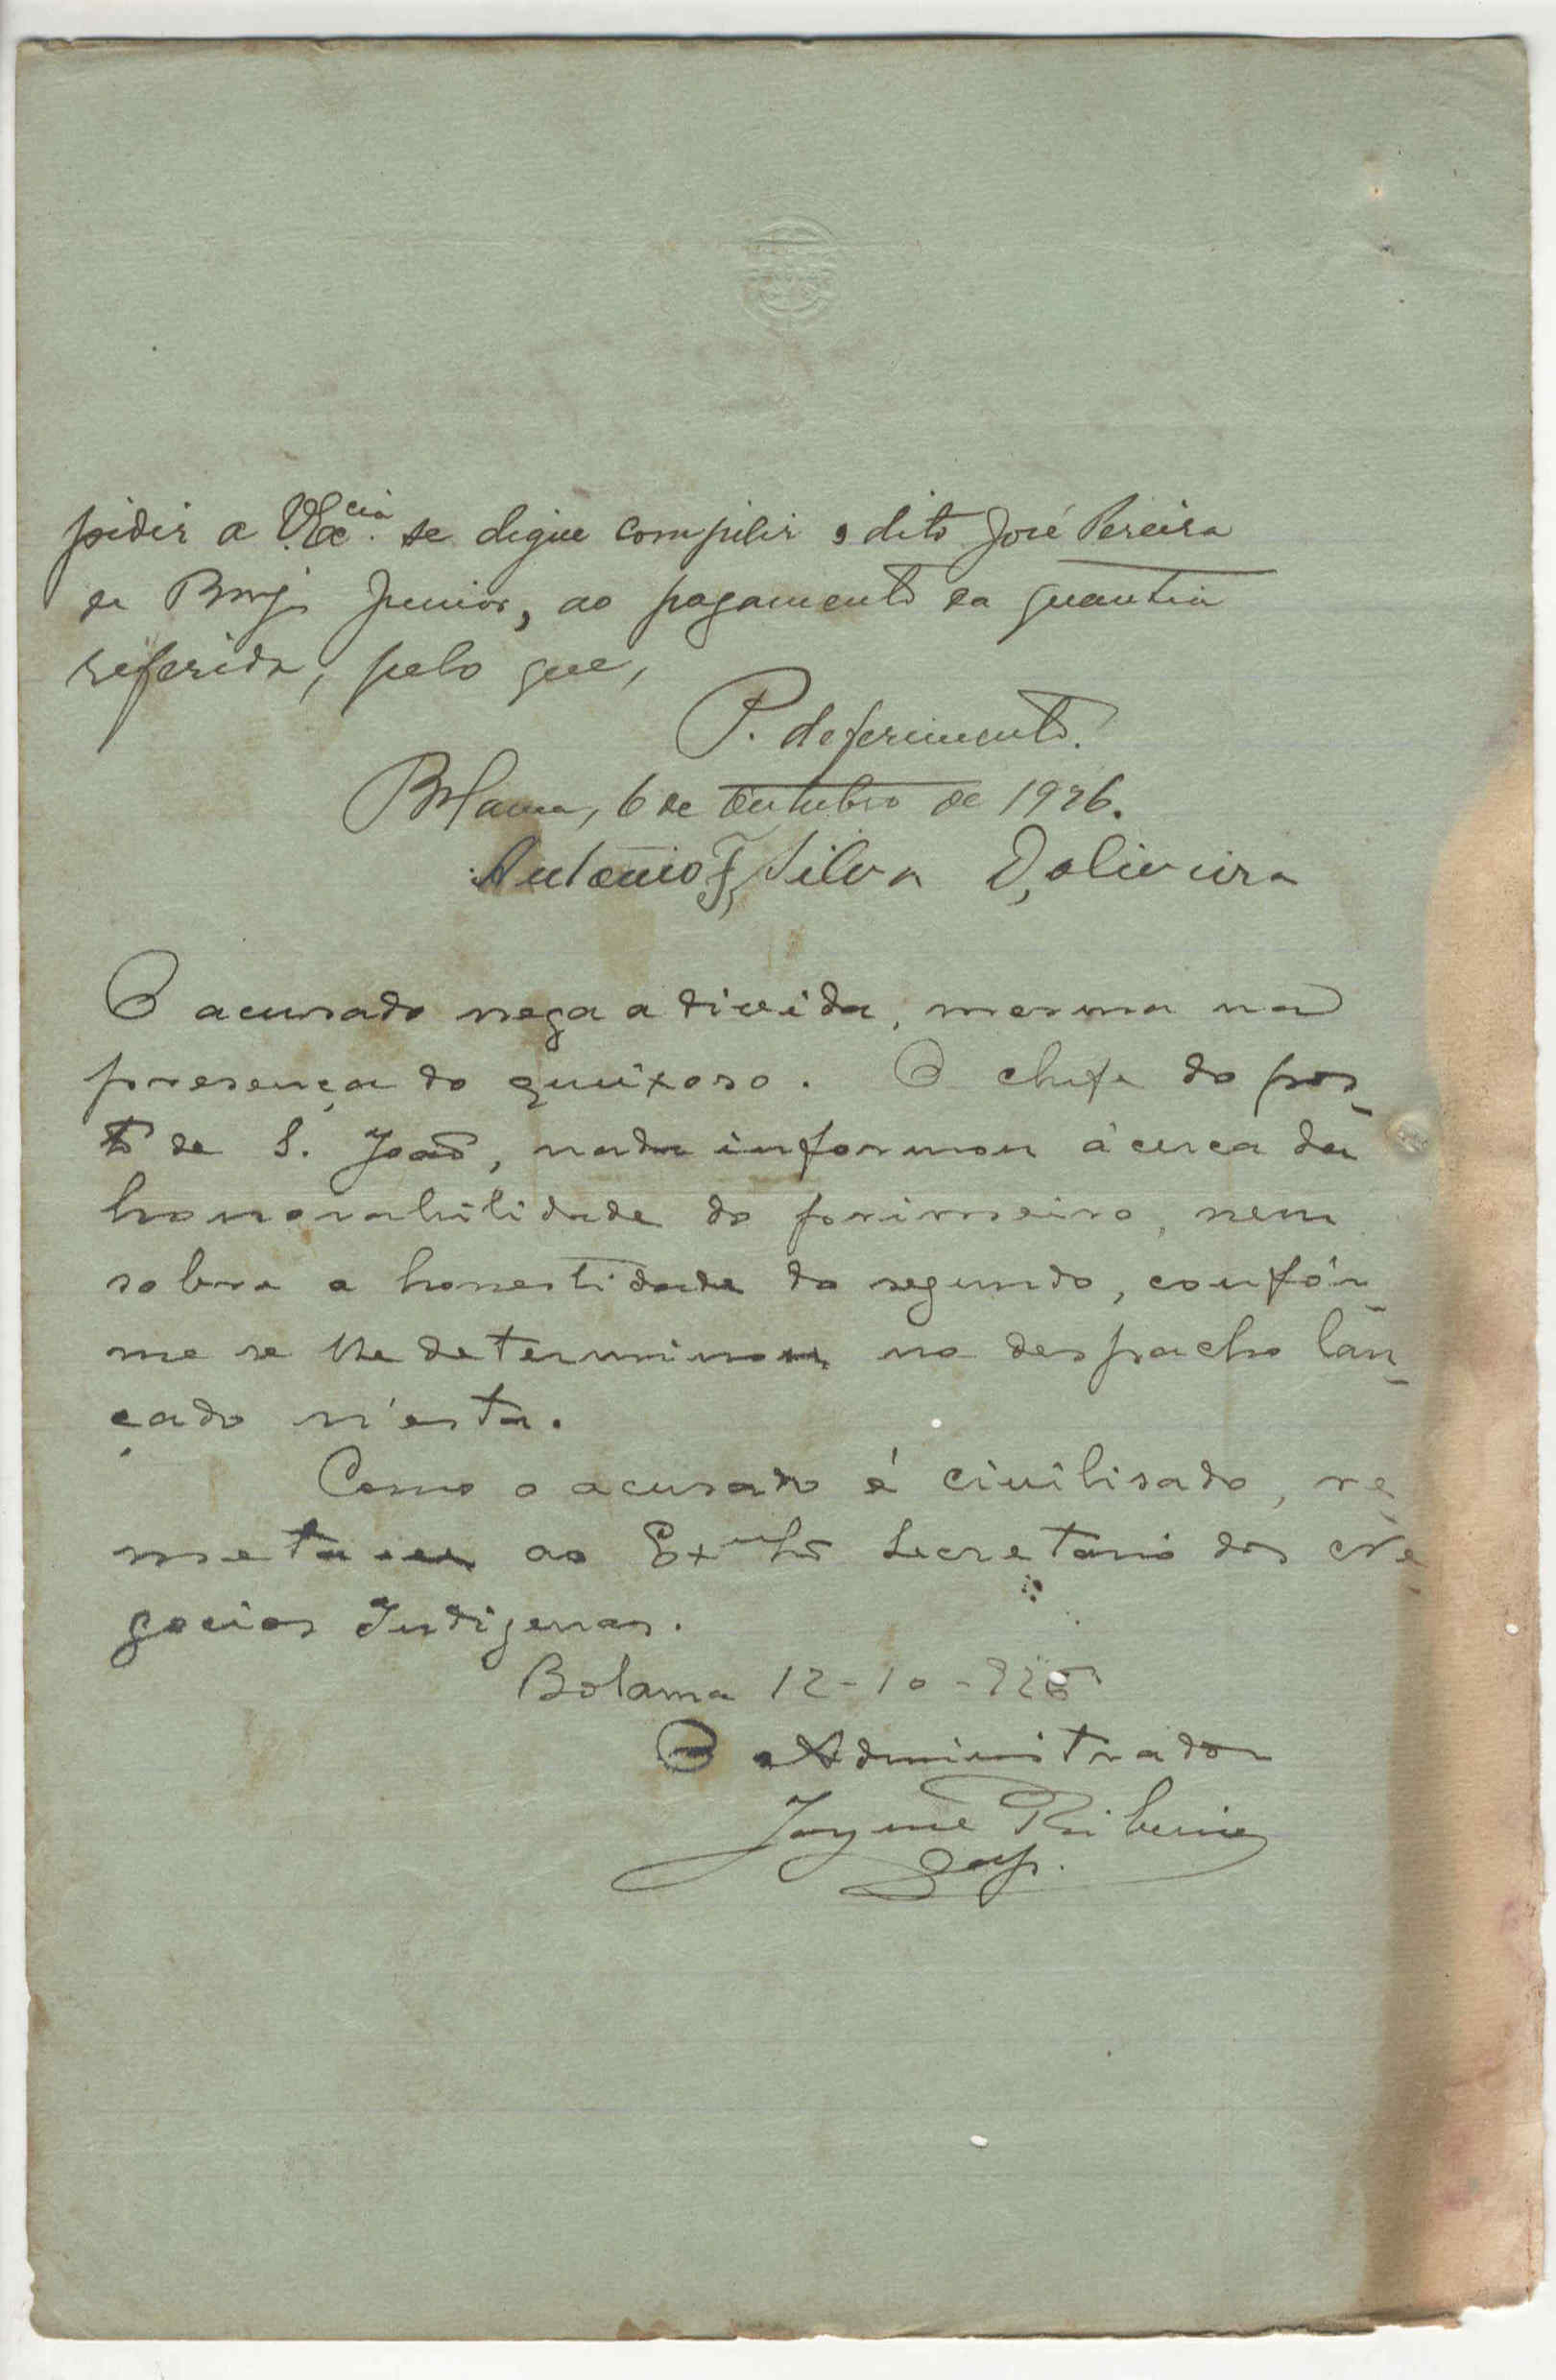 pidir a V. Ex.cia se digne compilir o dito José Pereira
de Borja Junior, ao pagamento da quantia
referida, pelo que,
P. deferimento.
Bolama, 6 de Outubro de 1926.
António F, Silva D,oliveira
O acusado nega a divida, mesma na
presença do queixoso. O chefe do pos-
to de S. João, nada informou ácerca da
honorabilidade do primeiro, nem
sobre a honestidade do segundo, confór-
me se lhe determinou no despacho lan-
çado n'esta.
Como o acusado é civilisado, re-
meta-se ao Exmo Snr Secretario dos Ne-
gocios Indigenas.
Bolama 12-10-926
O Administrador
Jayme Ribeiro